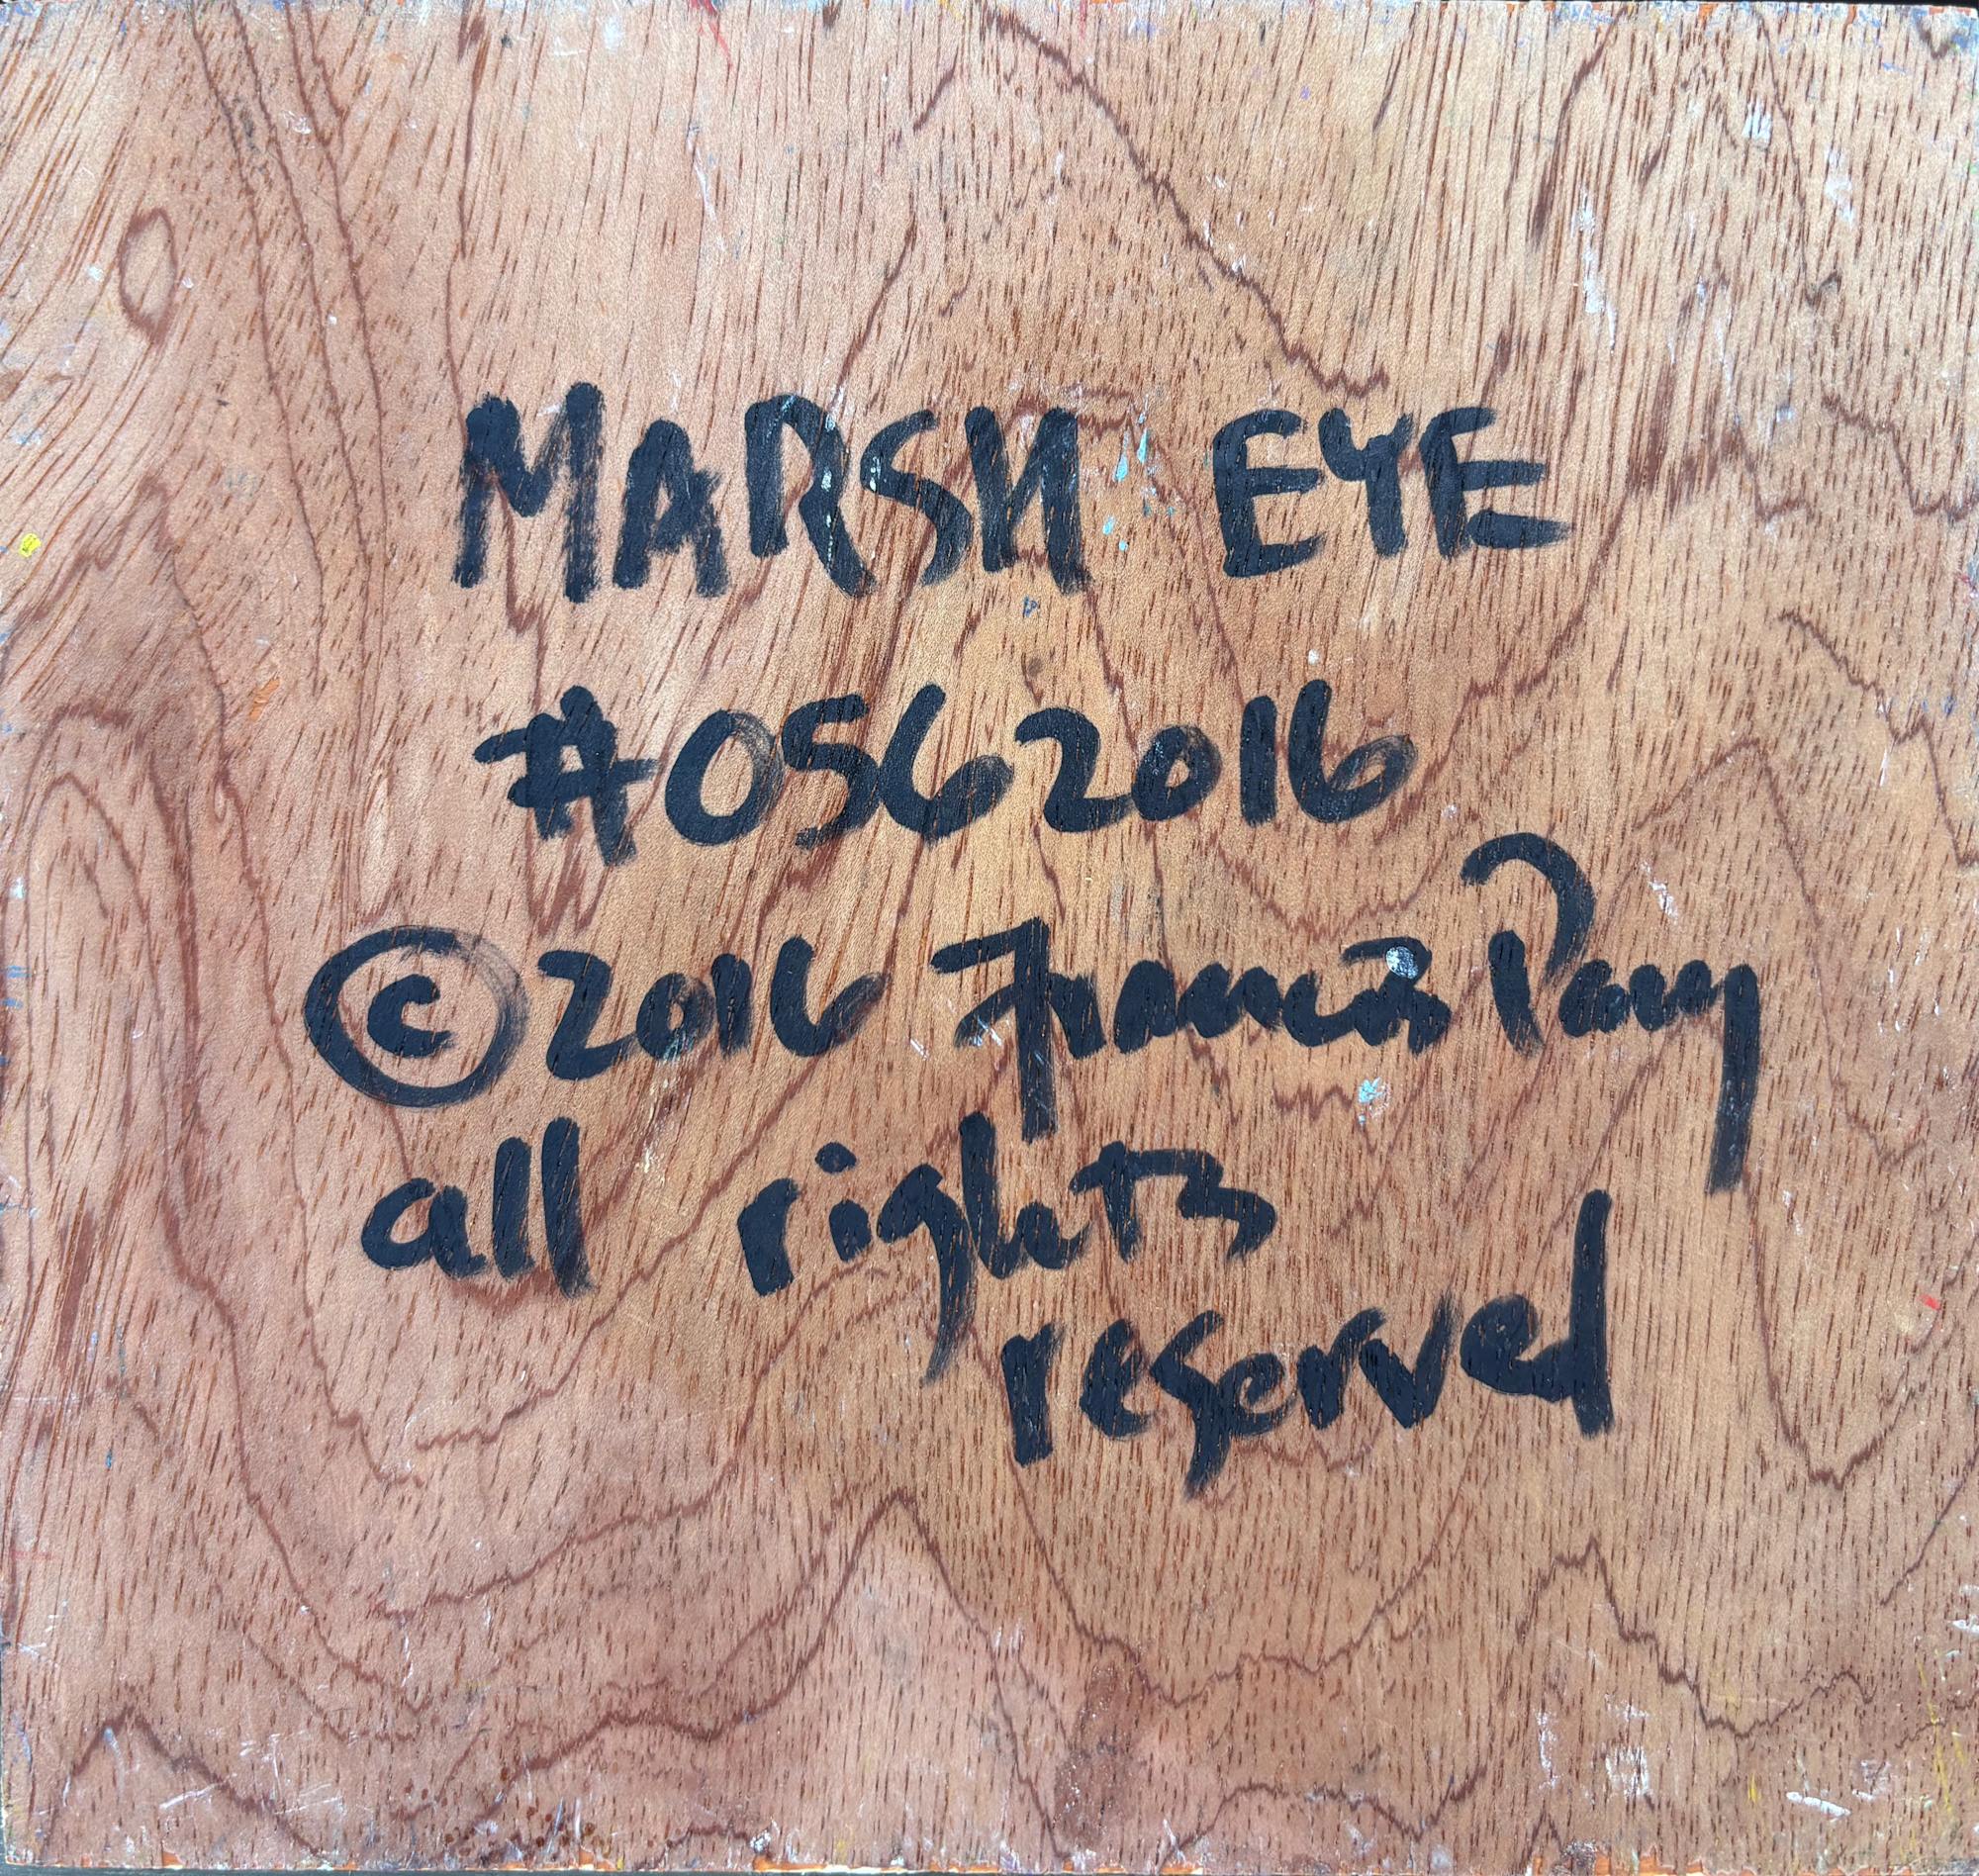 MARSH EYE
#0562016
©2016 Francis Pavy
all rights
reserved